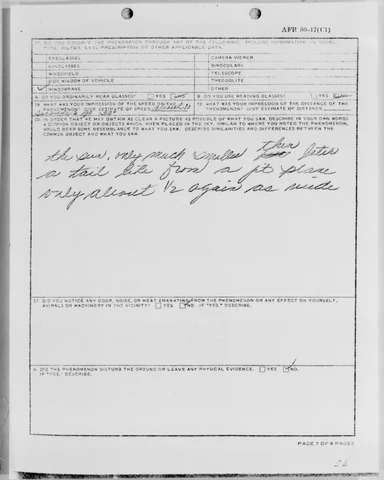 AFR 80-17(C1)
17. DID YOU OBSERVE THE PHENOMENON THROUGH ANY OF THE FOLLOWING? INCLUDE INFORMATION ON MODEL, TYPE, FILTER, LENS PRESCRIPTION OR OTHER APPLICABLE DATA.
EYEGLASSES CAMERA VIEWER
SUNGLASSES BINOCULARS
WINDSHIELD TELESCOPE
SIDE WINDOW OF VEHICLE THEODOLITE
WINDOWPANE OTHER
A. DO YOU ORDINARILY WEAR GLASSES? YES NO B. DO YOU USE READING GLASSES? YES NO
18. WHAT WAS YOUR IMPRESSION OF THE SPEED OF THE PHENOMENON? GIVE ESTIMATE OF SPEED
19. WHAT WAS YOUR IMPRESSION OF THE DISTANCE OF THE PHENOMENON? GIVE ESTIMATE OF DISTANCE.
20. IN ORDER THAT WE MAY OBTAIN AS CLEAR A PICTURE AS POSSIBLE OF WHAT YOU SAW, DESCRIBE IN YOUR OWN WORDS
A COMMON OBJECT OR OBJECTS WHICH, WHEN PLACED IN THE SKY, SIMILAR TO WHERE YOU NOTED THE PHENOMENON,
WOULD BEAR SOME RESEMBLANCE TO WHAT YOU SAW. DESCRIBE SIMILARITIES AND DIFFERENCES BETWEEN THE
COMMON OBJECT AND WHAT YOU SAW.
the sun, only much smaller then later
a tail lite from a jet plane
only about 1/2 again as wide
21. DID YOU NOTICE ANY ODOR, NOISE, OR HEAT EMANATING FROM THE PHENOMENON OR ANY EFFECT ON YOURSELF,
ANIMALS OR MACHINERY IN THE VICINITY? YES NO. IF "YES," DESCRIBE.
A. DID THE PHENOMENON DISTURB THE GROUND OR LEAVE ANY PHYSICAL EVIDENCE. YES NO.
IF "YES," DESCRIBE.
PAGE 7 OF 9 PAGES